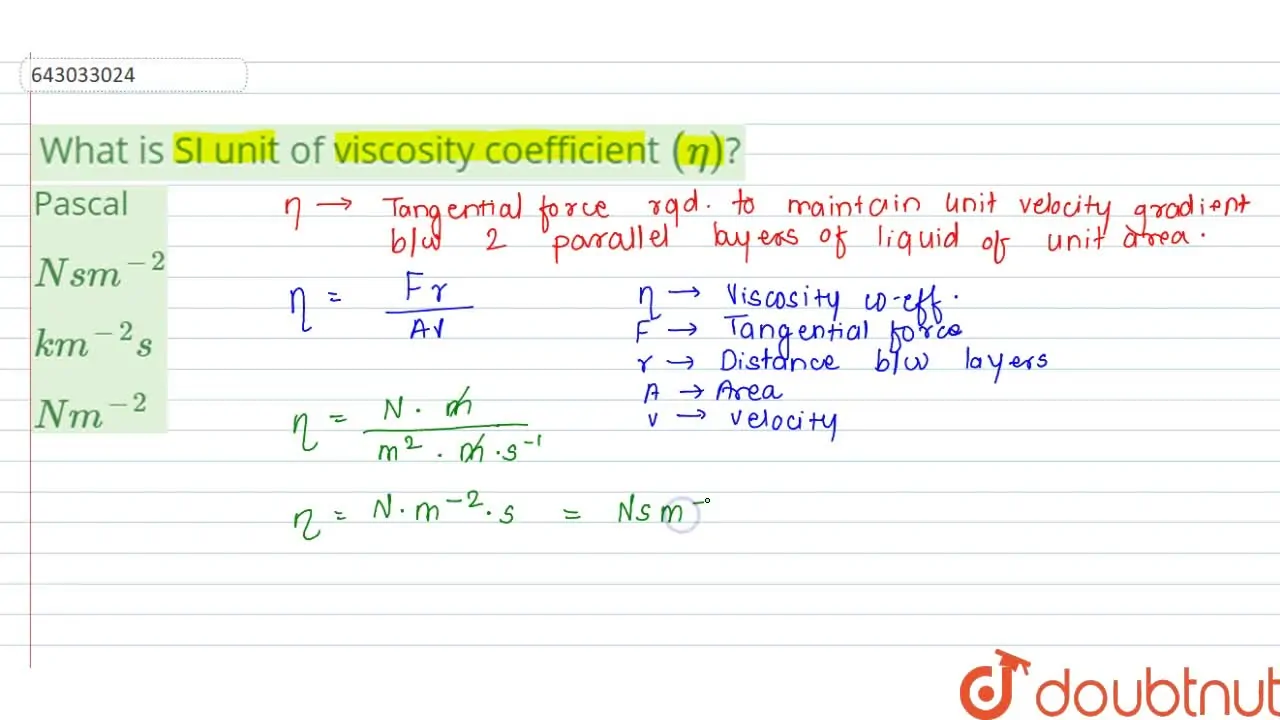 643033024
What is SI unit of viscosity coefficient (η)?
Pascal
Nsm⁻²
km⁻²s
Nm⁻²
η → Tangential force rqd. to maintain unit velocity gradient
b/w 2 parallel layers of liquid of unit area.
η = Fr / Av
η → Viscosity co-eff.
F → Tangential force
r → Distance b/w layers
A → Area
v → velocity
η = N · m / m² · m · s⁻¹
η = N · m⁻² · s = Nsm⁻
doubtnut